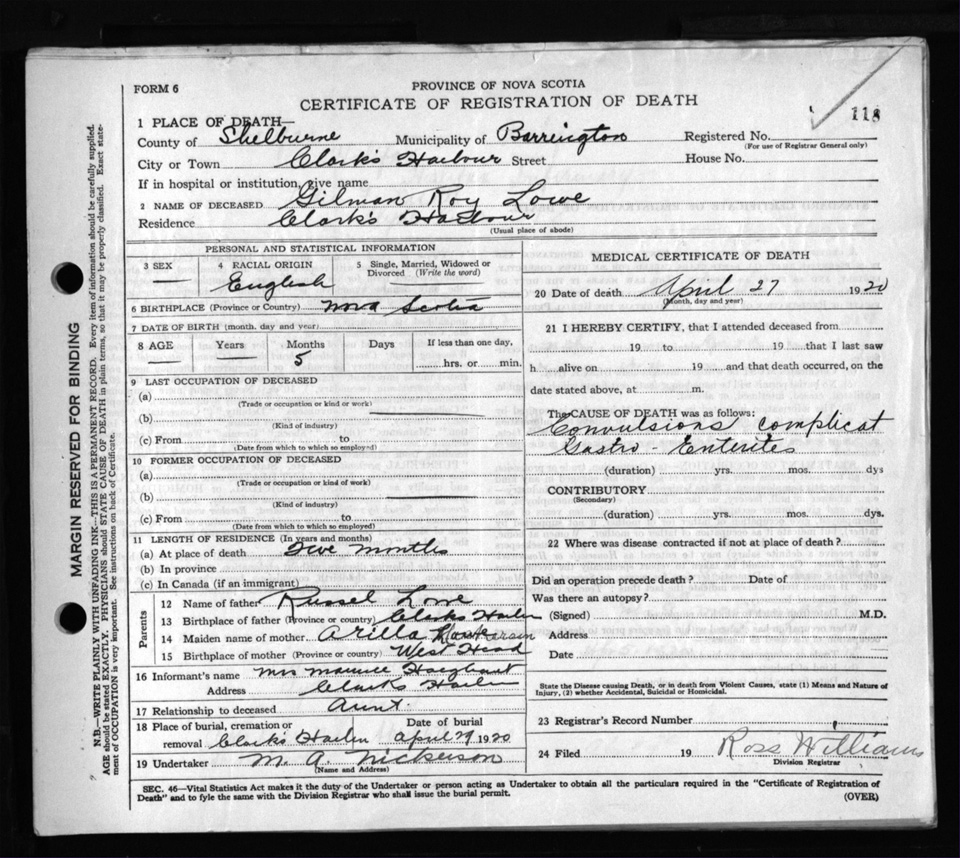 FORM 6
PROVINCE OF NOVA SCOTIA
CERTIFICATE OF REGISTRATION OF DEATH
118
1 PLACE OF DEATH—
County of Shelburne Municipality of Barrington Registered No.
(For use of Registrar General only)
City or Town Clark's Harbour Street House No.
If in hospital or institution, give name
2 NAME OF DECEASED Gilman Roy Lowe
Residence Clark's Harbour
(Usual place of abode)
PERSONAL AND STATISTICAL INFORMATION
3 SEX
4 RACIAL ORIGIN
English
5 Single, Married, Widowed or
Divorced (Write the word)
6 BIRTHPLACE (Province or Country) Nova Scotia
7 DATE OF BIRTH (month, day and year)
8 AGE Years Months Days If less than one day,
5 hrs. or min.
9 LAST OCCUPATION OF DECEASED
(a)
(Trade or occupation or kind or work)
(b)
(Kind of industry)
(c) From to
(Date from which to which so employed)
10 FORMER OCCUPATION OF DECEASED
(a)
(Trade or occupation or kind of work)
(b)
(Kind of industry)
(c) From to
(Date from which to which so employed)
11 LENGTH OF RESIDENCE (In years and months)
(a) At place of death five months
(b) In province
(c) In Canada (if an immigrant)
Parents
12 Name of father Russel Lowe
13 Birthplace of father (Province or country) Clarks Harbor
14 Maiden name of mother Arilla
15 Birthplace of mother (Province or country) West Head
16 Informant's name Mrs Maurice
Address Clarks Harbor
17 Relationship to deceased Aunt
18 Place of burial, cremation or Date of burial
removal Clarks Harbor April 29 1920
19 Undertaker M. A. Nickerson
(Name and Address)
MEDICAL CERTIFICATE OF DEATH
20 Date of death April 27 1920
(Month, day and year)
21 I HEREBY CERTIFY, that I attended deceased from
19 to 19 that I last saw
h alive on 19 and that death occurred, on the
date stated above, at m.
The CAUSE OF DEATH was as follows:
Convulsions complicat
Gastro-Enterites
(duration) yrs. mos. dys
CONTRIBUTORY
(Secondary)
(duration) yrs. mos. dys.
22 Where was disease contracted if not at place of death?
Did an operation precede death? Date of
Was there an autopsy?
(Signed) M.D.
Address
Date
State the Disease causing Death, or in death from Violent Causes, state (1) Means and Nature of
Injury, (2) whether Accidental, Suicidal or Homicidal.
23 Registrar's Record Number
24 Filed 19 Ross Williams
Division Registrar
SEC. 46—Vital Statistics Act makes it the duty of the Undertaker or person acting as Undertaker to obtain all the particulars required in the "Certificate of Registration of
Death" and to fyle the same with the Division Registrar who shall issue the burial permit. (OVER)
MARGIN RESERVED FOR BINDING
N.B.—WRITE PLAINLY WITH UNFADING INK—THIS IS A PERMANENT RECORD. Every item of information should be carefully supplied.
AGE should be stated EXACTLY. PHYSICIANS should STATE CAUSE OF DEATH in plain terms, so that it may be properly classified. Exact state-
ment of OCCUPATION is very important. See instructions on back of Certificate.